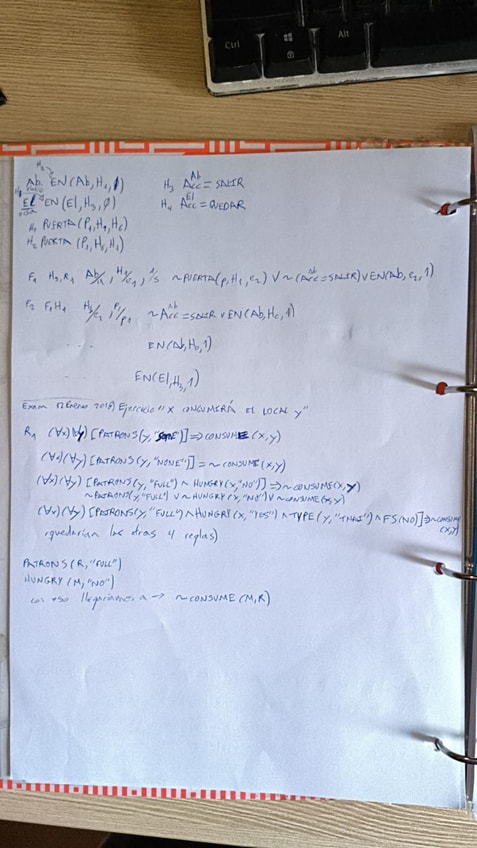 Ctrl
Alt
H₁ Ab EN(Ab, H₁, 1)
H₃ Acc^Ab = SALIR
El EN(El, H₃, 0)
H₄ Acc^El = QUEDAR
H₁ PUERTA(P₁, H₁, H₀)
H₂ PUERTA(P₁, H₀, H₁)
F₁ H₃, R₁ ~PUERTA(p, H₁, e₂) ∨ ~(Acc^Ab = SALIR) ∨ EN(Ab, e₂, 1)
F₂ F₁ H₁ ~Acc^Ab = SALIR ∨ EN(Ab, H₀, 1)
EN(Ab, H₀, 1)
EN(El, H₃, 1)
Exam 2018) Ejercicio "X CONSUMERÍA EL LOCAL y"
R₁ (∀x)(∀y) [PATRONS(y, "SOME")] ⇒ CONSUME(x,y)
(∀x)(∀y) [PATRONS(y, "NONE")] ⇒ ~CONSUME(x,y)
(∀x)(∀y) [PATRONS(y, "FULL") ∧ HUNGRY(x, "NO")] ⇒ ~CONSUME(x,y)
~PATRONS(y, "FULL") ∨ ~HUNGRY(x, "NO") ∨ ~CONSUME(x,y)
(∀x)(∀y) [PATRONS(y, "FULL") ∧ HUNGRY(x, "YES") ∧ TYPE(y, "THAI") ∧ FS(NO)] ⇒ ~CONSUME
(x,y)
(quedarían las otras 4 reglas)
PATRONS(R, "FULL")
HUNGRY(M, "NO")
con eso llegaríamos a → ~CONSUME(M,R)